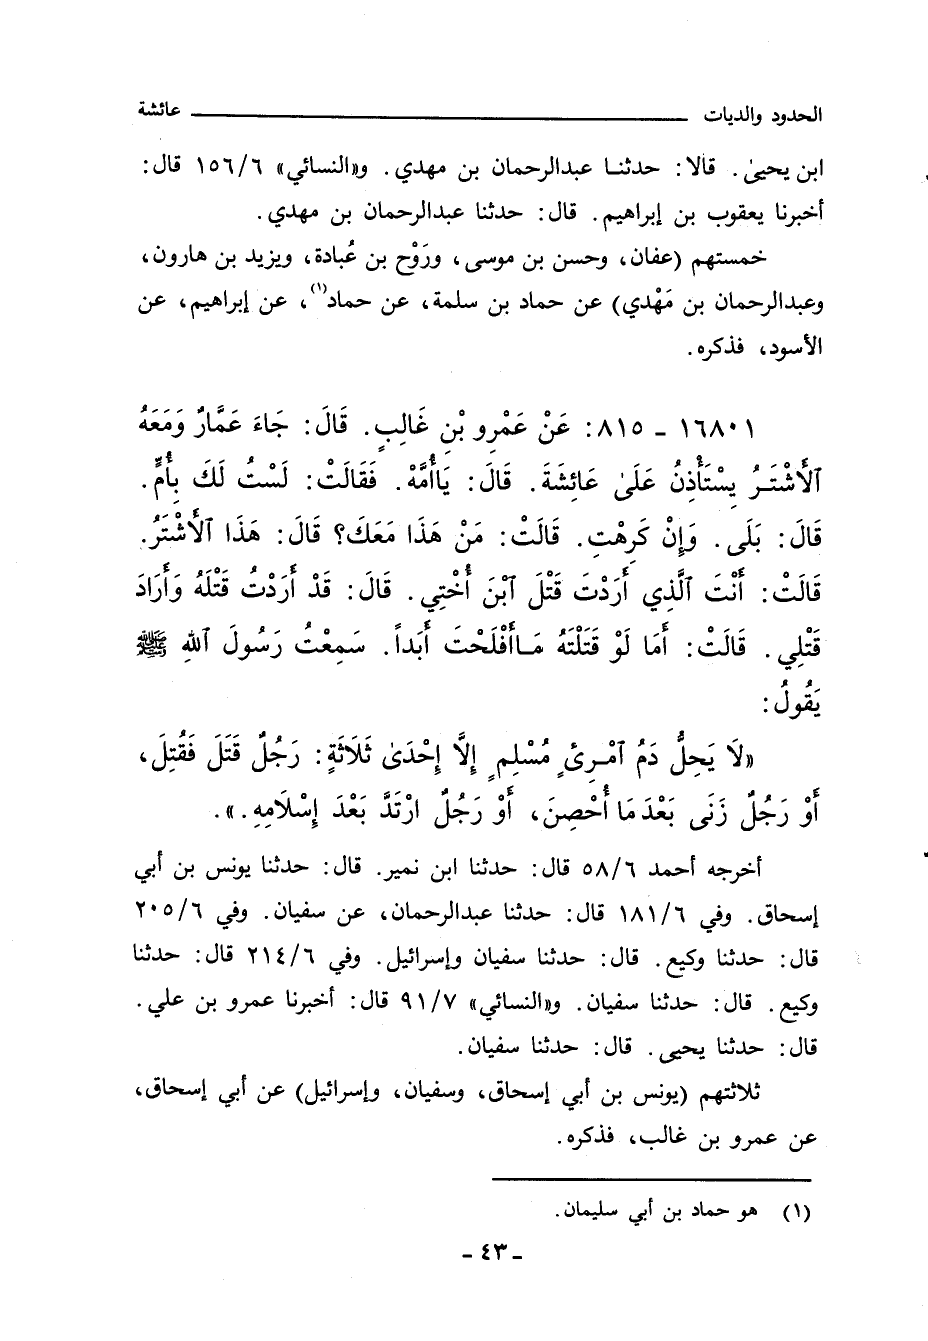 الحدود والديات ـــــــــــــــــــــ عائشة
ابن يحيىٰ. قالا: حدثنا عبدالرحمان بن مهدي. و«النسائي» ١٥٦/٦ قال:
أخبرنا يعقوب بن إبراهيم. قال: حدثنا عبدالرحمان بن مهدي.
خمستهم (عفان، وحسن بن موسى، ورَوْح بن عُبادة، ويزيد بن هارون،
وعبدالرحمان بن مَهْدي) عن حماد بن سلمة، عن حماد(١)، عن إبراهيم، عن
الأسود، فذكره.
١٦٨٠١ - ٨١٥: عَنْ عَمْرِو بْنِ غَالِبٍ. قَالَ: جَاءَ عَمَّارٌ وَمَعَهُ
ٱلْأَشْتَرُ يِسْتَأْذِنُ عَلَىٰ عَائِشَةَ. قَالَ: يَاأُمَّهْ. فَقَالَتْ: لَسْتُ لَكَ بِأُمٍّ.
قَالَ: بَلَى. وَإِنْ كَرِهْتِ. قَالَتْ: مَنْ هَذَا مَعَكَ؟ قَالَ: هَذَا ٱلْأَشْتَرُ.
قَالَتْ: أَنْتَ ٱلَّذِي أَرَدْتَ قَتْلَ ٱبْنَ أُخْتِي. قَالَ: قَدْ أَرَدْتُ قَتْلَهُ وَأَرَادَ
قَتْلِي. قَالَتْ: أَمَا لَوْ قَتَلْتَهُ مَاأَفْلَحْتَ أَبَداً. سَمِعْتُ رَسُولَ ٱللهِ ﷺ
يَقُولُ:
«لَا يَحِلُّ دَمُ ٱمْرِئٍ مُسْلِمٍ إِلَّا إِحْدَىٰ ثَلَاثَةٍ: رَجُلٌ قَتَلَ فَقُتِلَ،
أَوْ رَجُلٌ زَنَى بَعْدَ مَا أُحْصِنَ، أَوْ رَجُلٌ ارْتَدَّ بَعْدَ إِسْلَامِهِ.».
أخرجه أحمد ٥٨/٦ قال: حدثنا ابن نمير. قال: حدثنا يونس بن أبي
إسحاق. وفي ١٨١/٦ قال: حدثنا عبدالرحمان، عن سفيان. وفي ٢٠٥/٦
قال: حدثنا وكيع. قال: حدثنا سفيان وإسرائيل. وفي ٢١٤/٦ قال: حدثنا
وكيع. قال: حدثنا سفيان. و«النسائي» ٩١/٧ قال: أخبرنا عمرو بن علي.
قال: حدثنا يحيى. قال: حدثنا سفيان.
ثلاثتهم (يونس بن أبي إسحاق، وسفيان، وإسرائيل) عن أبي إسحاق،
عن عمرو بن غالب، فذكره.
(١) هو حماد بن أبي سليمان.
- ٤٣ -